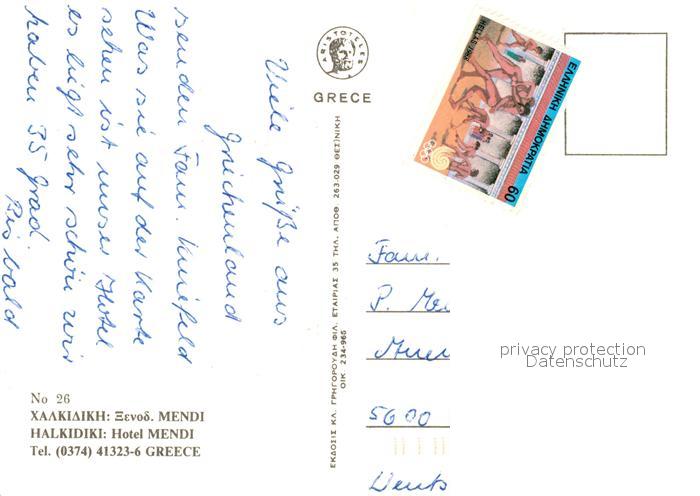 Viele Grüße aus
Griechenland
senden Fam. Kniefeld
Was sie auf der Karte
sehen ist unser Hotel
es liegt sehr schön wir
haben 35 Grad.
Bis bald
No 26
ΧΑΛΚΙΔΙΚΗ: Ξενοδ. MENDI
HALKIDIKI: Hotel MENDI
Tel. (0374) 41323-6 GREECE
ARISTOTELES
GRECE
ΕΚΔΟΣΙΣ ΚΛ. ΓΡΗΓΟΡΟΥΔΗ ΦΙΛ. ΕΤΑΙΡΙΑΣ 35 ΤΗΛ. ΑΠΟΘ. 263.029 ΘΕΣ)ΝΙΚΗ
ΟΙΚ 234-965
HELLAS 1988
ΕΛΛΗΝΙΚΗ ΔΗΜΟΚΡΑΤΙΑ
60
Fam.
P. Me
5600
Deuts
privacy protection
Datenschutz